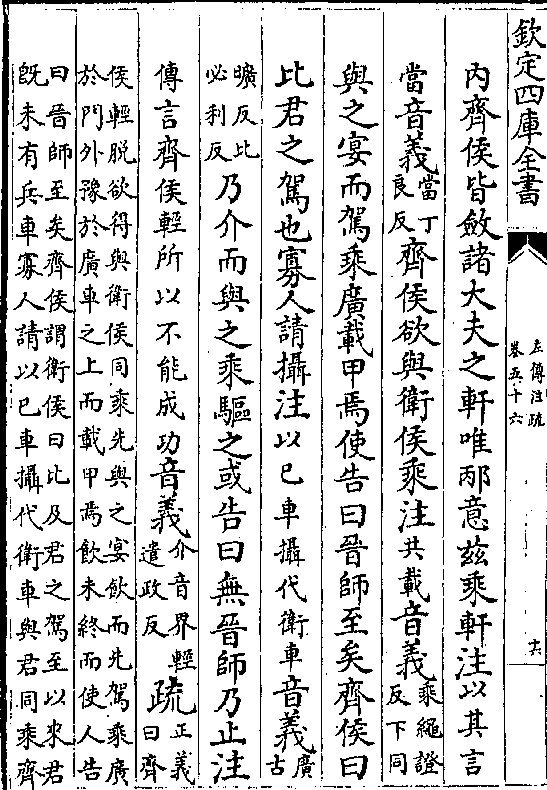 欽定四庫全書
左傳注疏
卷五十六
十六
內齊侯皆斂諸大夫之軒唯邴意兹乘軒注以其言
當音義當丁
良反齊侯欲與衛侯乘注共載音義乘繩證
反下同
與之宴而駕乘廣載甲焉使告曰晉師至矣齊侯曰
比君之駕也寡人請攝注以已車攝代衛車音義廣
古
曠反比
必利反乃介而與之乘驅之或告曰無晉師乃止注
傳言齊侯輕所以不能成功音義介音界輕
遣政反疏正義
曰齊
侯輕脫欲得與衛侯同乘先與之宴飲而先駕乘廣
於門外豫於廣車之上而載甲焉飲未終而使人告
曰晉師至矣齊侯謂衛侯曰比及君之駕至以來君
既未有兵車寡人請以已車攝代衛車與君同乘齊